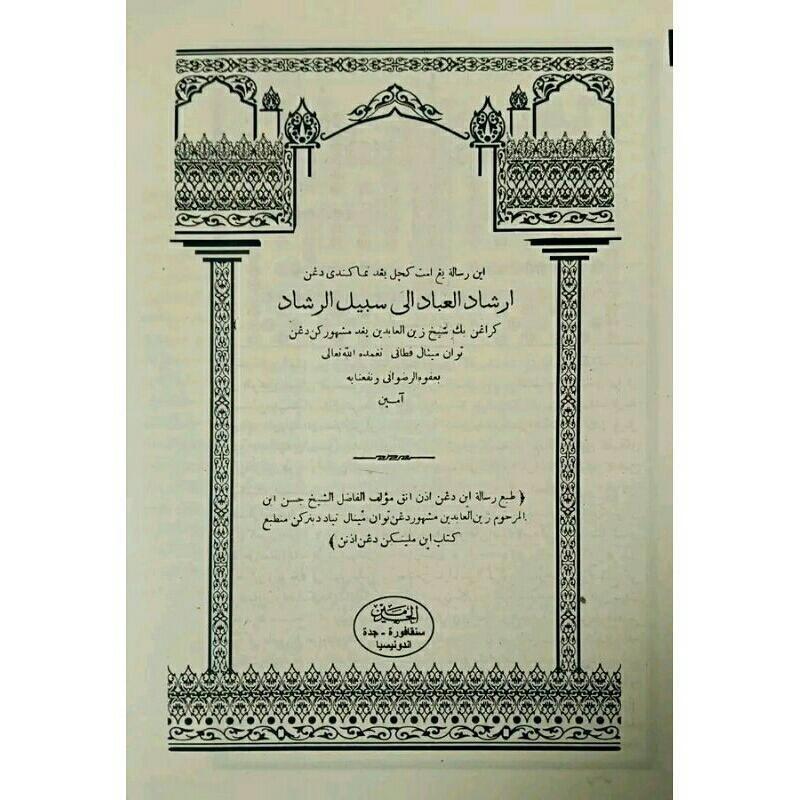 اين رسالة يڠ امت كچل يڠد نما كندي دڠن
ارشاد العباد الى سبيل الرشاد
كراڠن بڬ شيخ زين العابدين يڠد مشهوركن دڠن
توان مينال فطاني تغمده الله تعالى
بعفوه الرضواني ونفعنا به
آمين
﴿ طبع رسالة اين دڠن اذن انق مؤلف الفاضل الشيخ حسن ابن
المرحوم زين العابدين مشهور دڠن توان مينال تياد دبنركن منطبع
كتاب اين مليسكن دڠن اذنن ﴾
الحرمين
سنقافورة - جدة
اندونيسيا